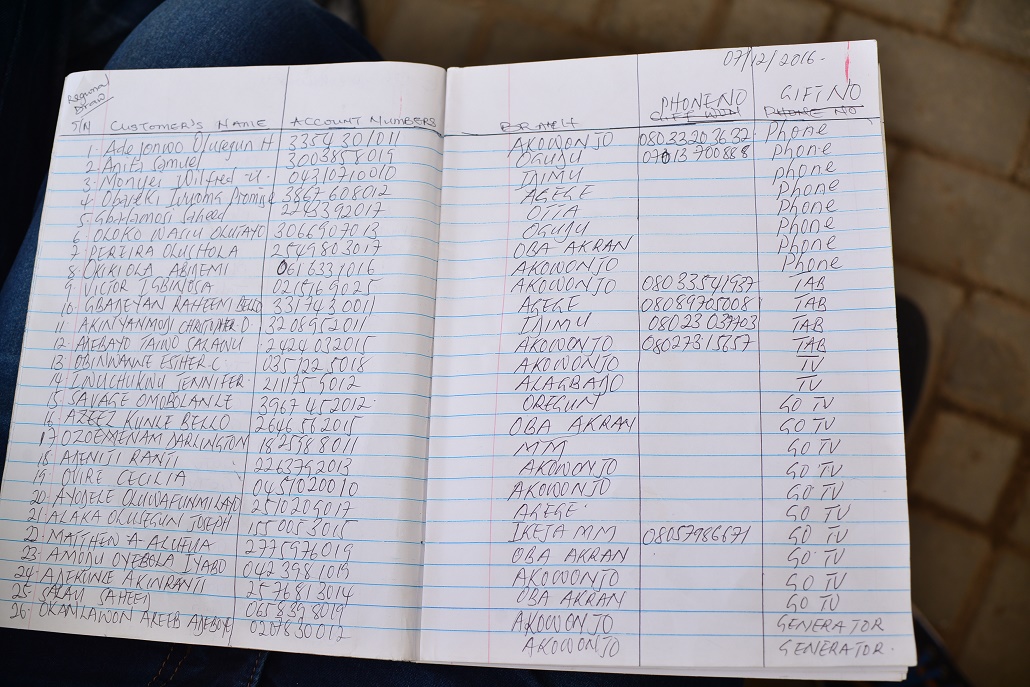 07/12/2016.
Regional Draw
S/N CUSTOMER'S NAME ACCOUNT NUMBERS BRANCH PHONE NO GIFT NO
1. Adejonwo Olusegun H 3354301011 AKOWONJO 08033203632 Phone
2. Anita Samuel 3003858019 OGUDU 07013700888 phone
3. Monyei Wilfred .U. 04310710010 IDIMU phone
4. Obayeki Ivuoma Promise 3867608012 AGEGE phone
5. Gbalamosi Saheed 2243392017 OTTA Phone
6. OLOKO WASIU OLUTAYO 3066907013 OGUDU Phone
7. PEREIRA OLUSHOLA 2549803017 OBA AKRAN Phone
8. OKIKIOLA ABIMEMI 0616331016 AKOWONJO Phone
9. VICTOR IGBINOSA 0215169025 AKOWONJO 08033541937 TAB
10. GBADEYAN RAHEEM BELLO 3317430011 AGEGE 08089705008 TAB
11. AKINYANMOJU CHRISTOPHER O 3208952011 IDIMU 08023037703 TAB
12. ADEBAYO TAIWO SALAWU 2424032015 AKOWONJO 08027315657 TAB
13. OBINWANNE ESTHER.C. 0351225018 AKOWONJO TV
14. JENNIFER. 2111759012 ALAGBADO TV
15. SAVAGE OMOBOLANLE 3967452012 OREGUN GO TV
16. AZEEZ KUNLE BELLO 2646562015 OBA AKRAN GO TV
17. OZOEMENAM DARLINGTON 1825988011 MM GO TV
18. ADENITI RANTI 2263792013 AKOWONJO GO TV
19. OVIRE CECILIA 0451020010 AKOWONJO GO TV
20. AYODELE OLUWAFUNMILAYO 2510209017 AGEGE. GO TV
21. ALAKA OLUSEGUN JOSEPH 1550053015 IKEJA MM 08057986671 GO TV
22. MATTHEW A 2775976019 OBA AKRAN GO TV
23. AMODU OYEBOLA IYABO 0423981019 AKOWONJO GO TV
24. ADEKUNLE AKINRANTI 2576813014 OBA AKRAN GO TV
25. SALAU SAHEED 0658398019 AKOWONJO GENERATOR
26. OKANLAWON AREEB ADEBOYE 0207830012 AKOWONJO GENERATOR.